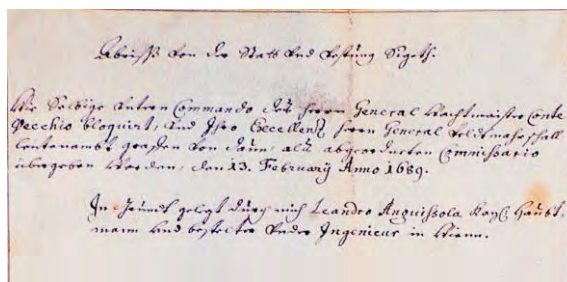 Abrisß von der Statt und Festung Sigeth.
Wie Selbige untern Commando deß Herrn General Wachtmaister Conte
Vecchio bloquirt, und Ihro Excellenz Herrn General Feldtmahrschall
Leutenandt graffen von als abgeordneten Commissario
übergeben worden, den 13. February Anno 1689.
In Grundt gelegt durch mich Leandro Anguissola Kayß. Haubt-
mann und bestelter Ingenieur in Wienn.